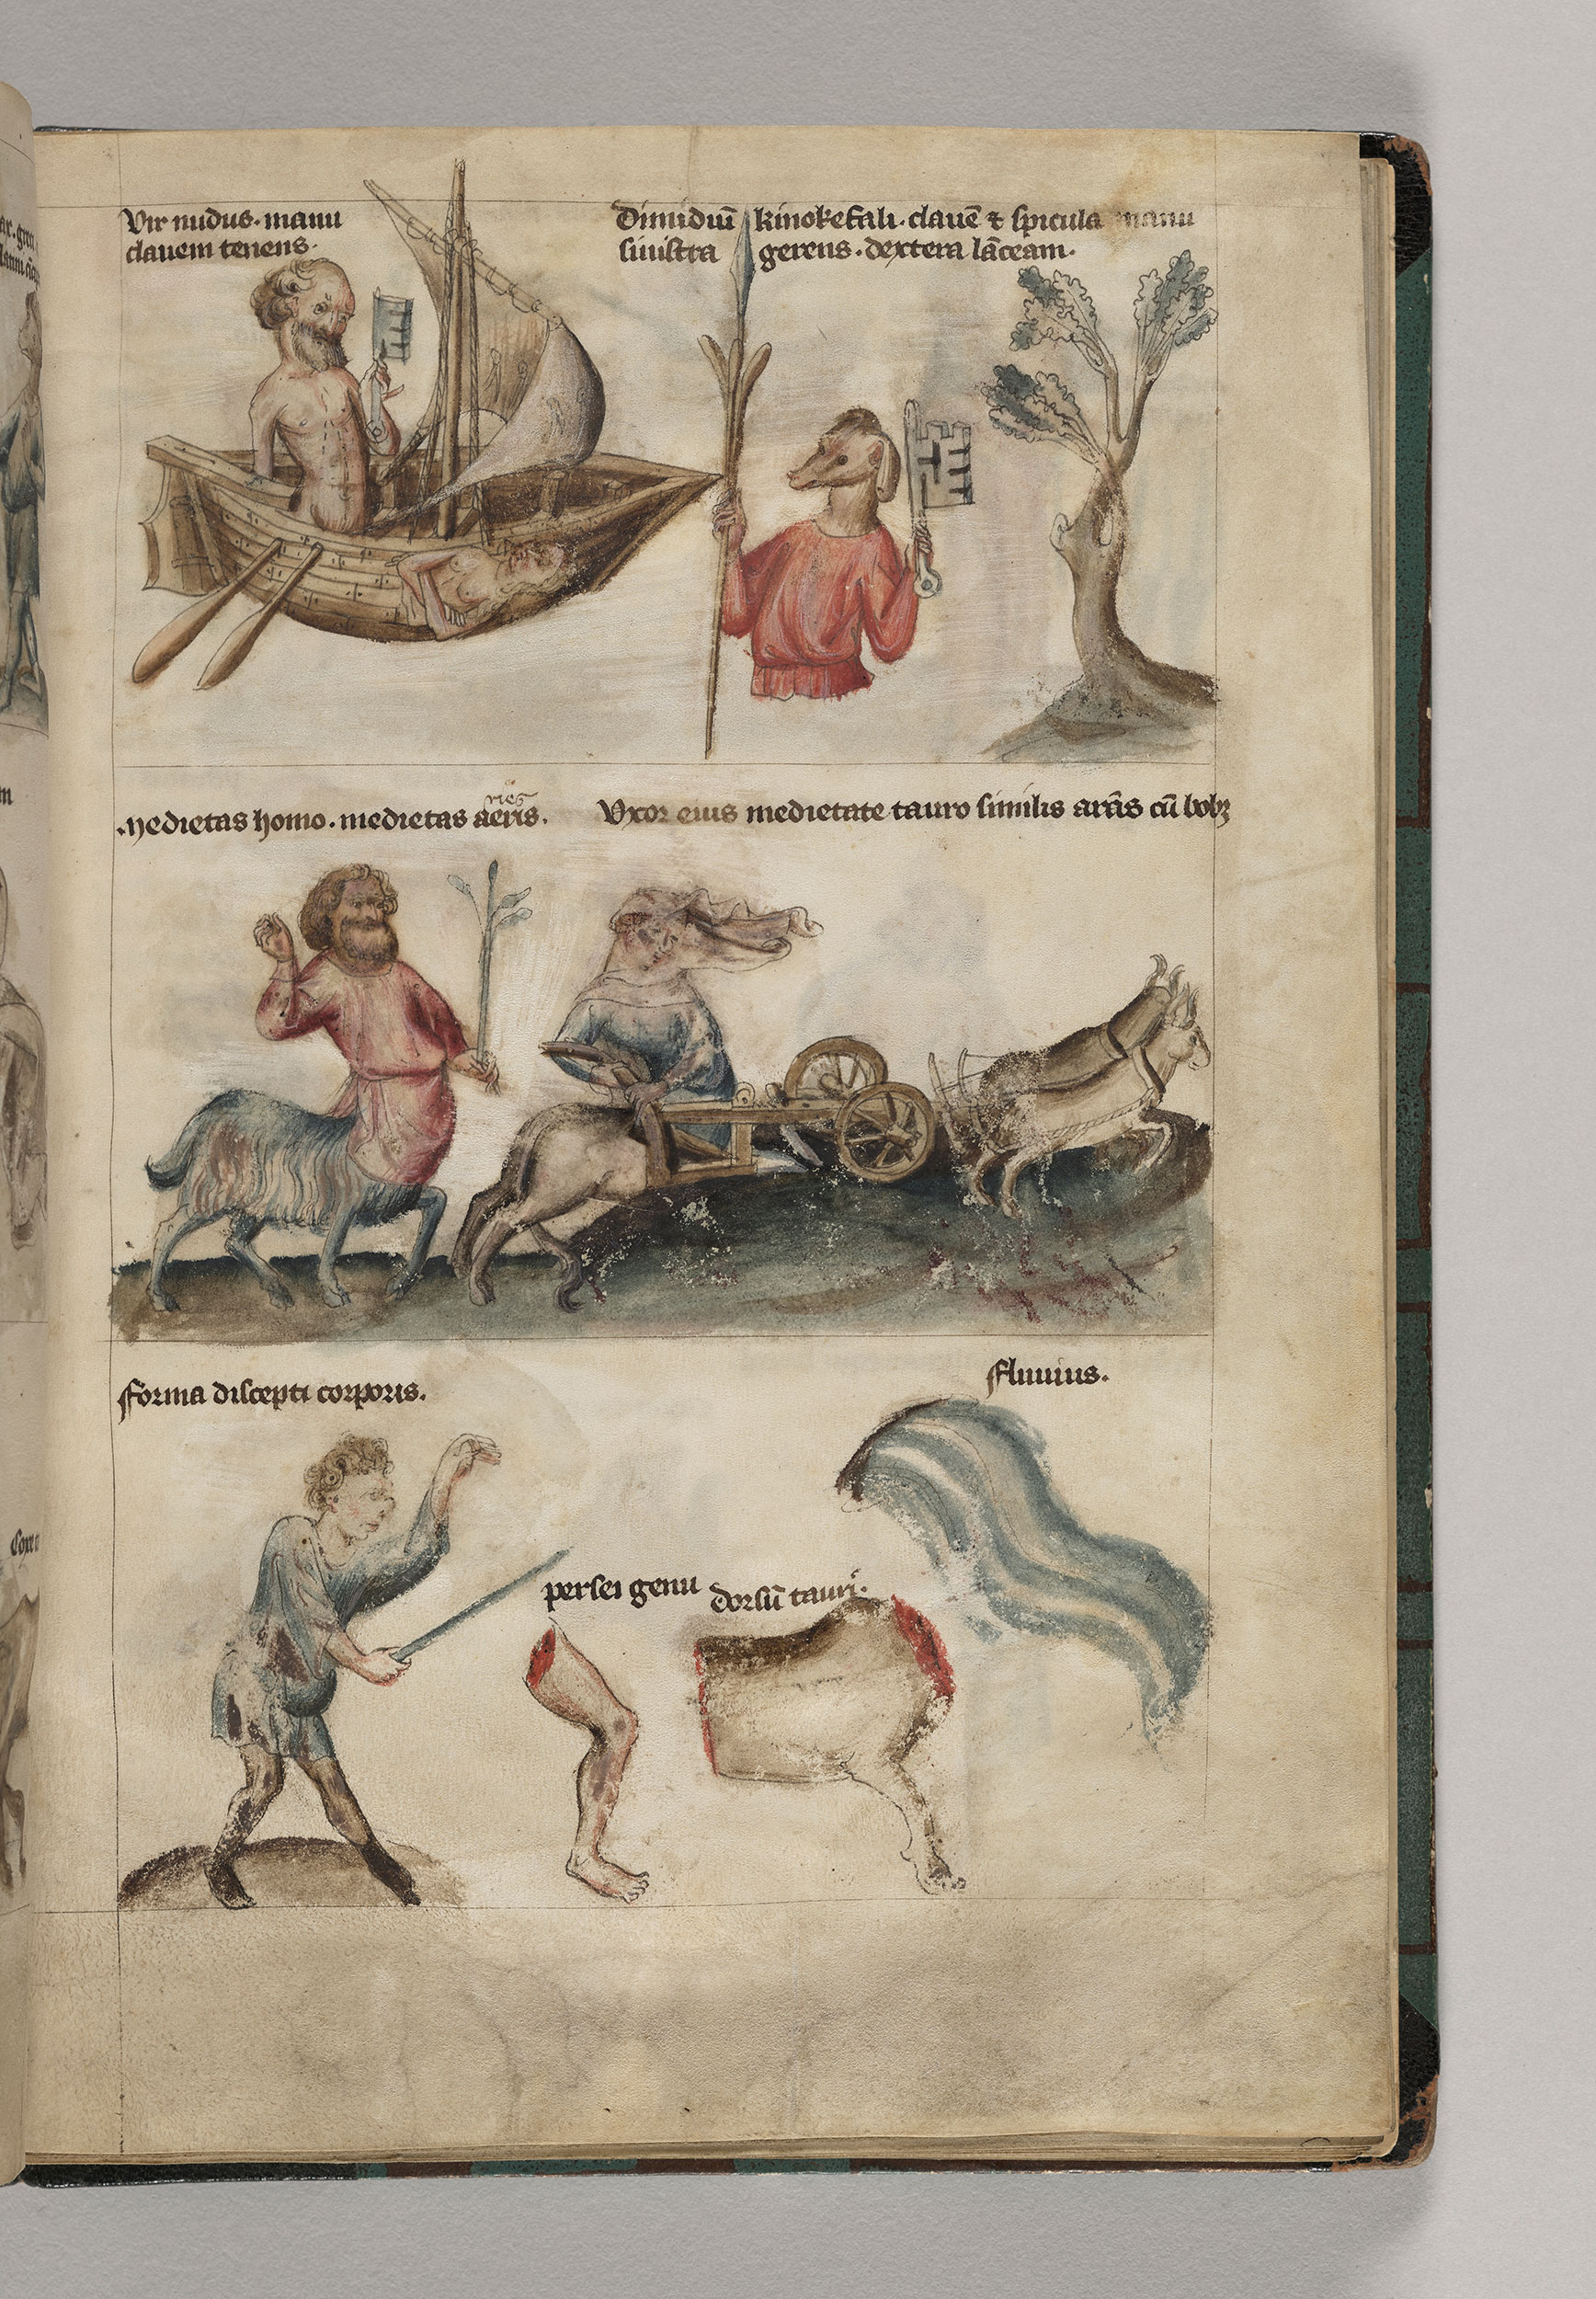 Vir nudus. manu
clauem tenens.
Dimidiū kinokefali. clauē ⁊ spicula manu
sinistra gerens. dextera lāceam.
ries
Medietas homo. medietas aeris.
Vxor eius medietate tauro similis arās cū bobꝫ
forma discepti corporis.
fluuius.
persei genu
dorsū tauri.